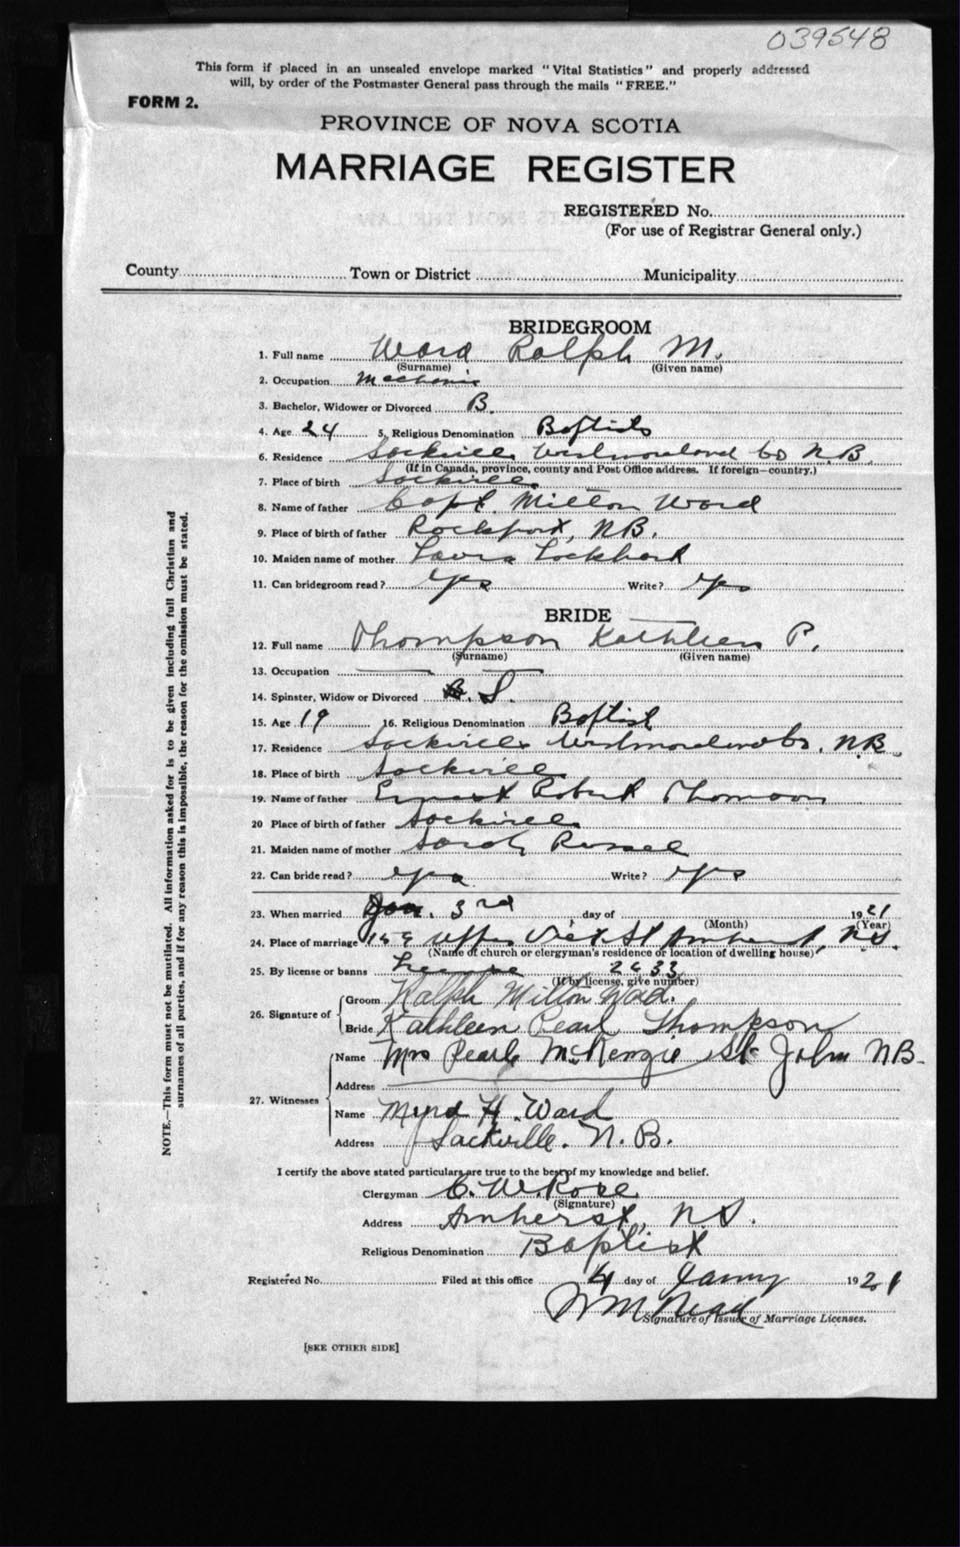 039548
This form if placed in an unsealed envelope marked "Vital Statistics" and properly addressed
will, by order of the Postmaster General pass through the mails "FREE."
FORM 2.
PROVINCE OF NOVA SCOTIA
MARRIAGE REGISTER
REGISTERED No.
(For use of Registrar General only.)
County Town or District Municipality
BRIDEGROOM
1. Full name Ward Ralph M.
(Surname) (Given name)
2. Occupation Mechanic
3. Bachelor, Widower or Divorced B.
4. Age 24 5. Religious Denomination Baptist
6. Residence Sackville Westmorland Co N.B.
(If in Canada, province, county and Post Office address. If foreign—country.)
7. Place of birth Sackville
8. Name of father Capt. Milton Ward
9. Place of birth of father Rockport, N.B.
10. Maiden name of mother Laura Lockhard
11. Can bridegroom read? yes Write? yes
BRIDE
12. Full name Thompson Kathleen P.
(Surname) (Given name)
13. Occupation
14. Spinster, Widow or Divorced S.
15. Age 19 16. Religious Denomination Baptist
17. Residence Sackville Westmorland Co. N.B.
18. Place of birth Sackville
19. Name of father Ernest Robert Thomson
20 Place of birth of father Sackville
21. Maiden name of mother Sarah
22. Can bride read? yes Write? yes
23. When married Jan. 3rd day of 1921
(Month) (Year)
24. Place of marriage Upper Vict. St Amherst, N.S.
(Name of church or clergyman's residence or location of dwelling house)
25. By license or banns license 2633
(If by license, give number)
26. Signature of Groom Ralph Milton Ward.
Bride Kathleen Pearl Thompson
27. Witnesses Name Mrs Pearle McKenzie St John NB.
Address
Name H. Ward
Address Sackville. N.B.
I certify the above stated particulars are true to the best of my knowledge and belief.
Clergyman C. W. Rose
(Signature)
Address Amherst, N.S.
Religious Denomination Baptist
Registered No. Filed at this office 4 day of Janny 1921
Signature of Issuer of Marriage Licenses.
[SEE OTHER SIDE]
NOTE.—This form must not be mutilated. All information asked for is to be given including full Christian and
surnames of all parties, and if for any reason this is impossible, the reason for the omission must be stated.